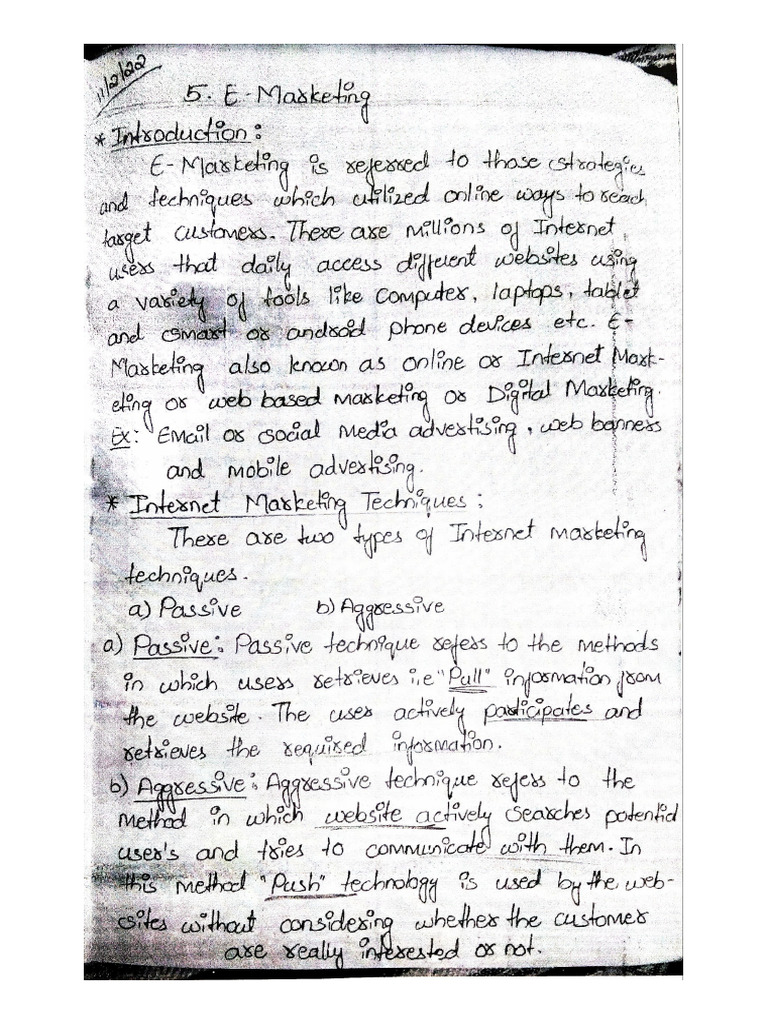 11/2/22
5. E-Marketing
* Introduction :
E-Marketing is referred to those strategies
and techniques which utilized online ways to reach
target customers. There are millions of Internet
users that daily access different websites using
a variety of tools like computer, laptops, tablet
and smart or android phone devices etc. E-
Marketing also known as online or Internet Mark-
eting or web based marketing or Digital Marketing.
Ex: Email or social media advertising, web banners
and mobile advertising.
* Internet Marketing Techniques :
There are two types of Internet marketing
techniques.
a) Passive b) Aggressive
a) Passive : Passive technique refers to the methods
in which users retrieves i.e "Pull" information from
the website. The user actively participates and
retrieves the required information.
b) Aggressive : Aggressive technique refers to the
method in which website actively searches potential
user's and tries to communicate with them. In
this method "Push" technology is used by the web-
sites without considering whether the customer
are really interested or not.